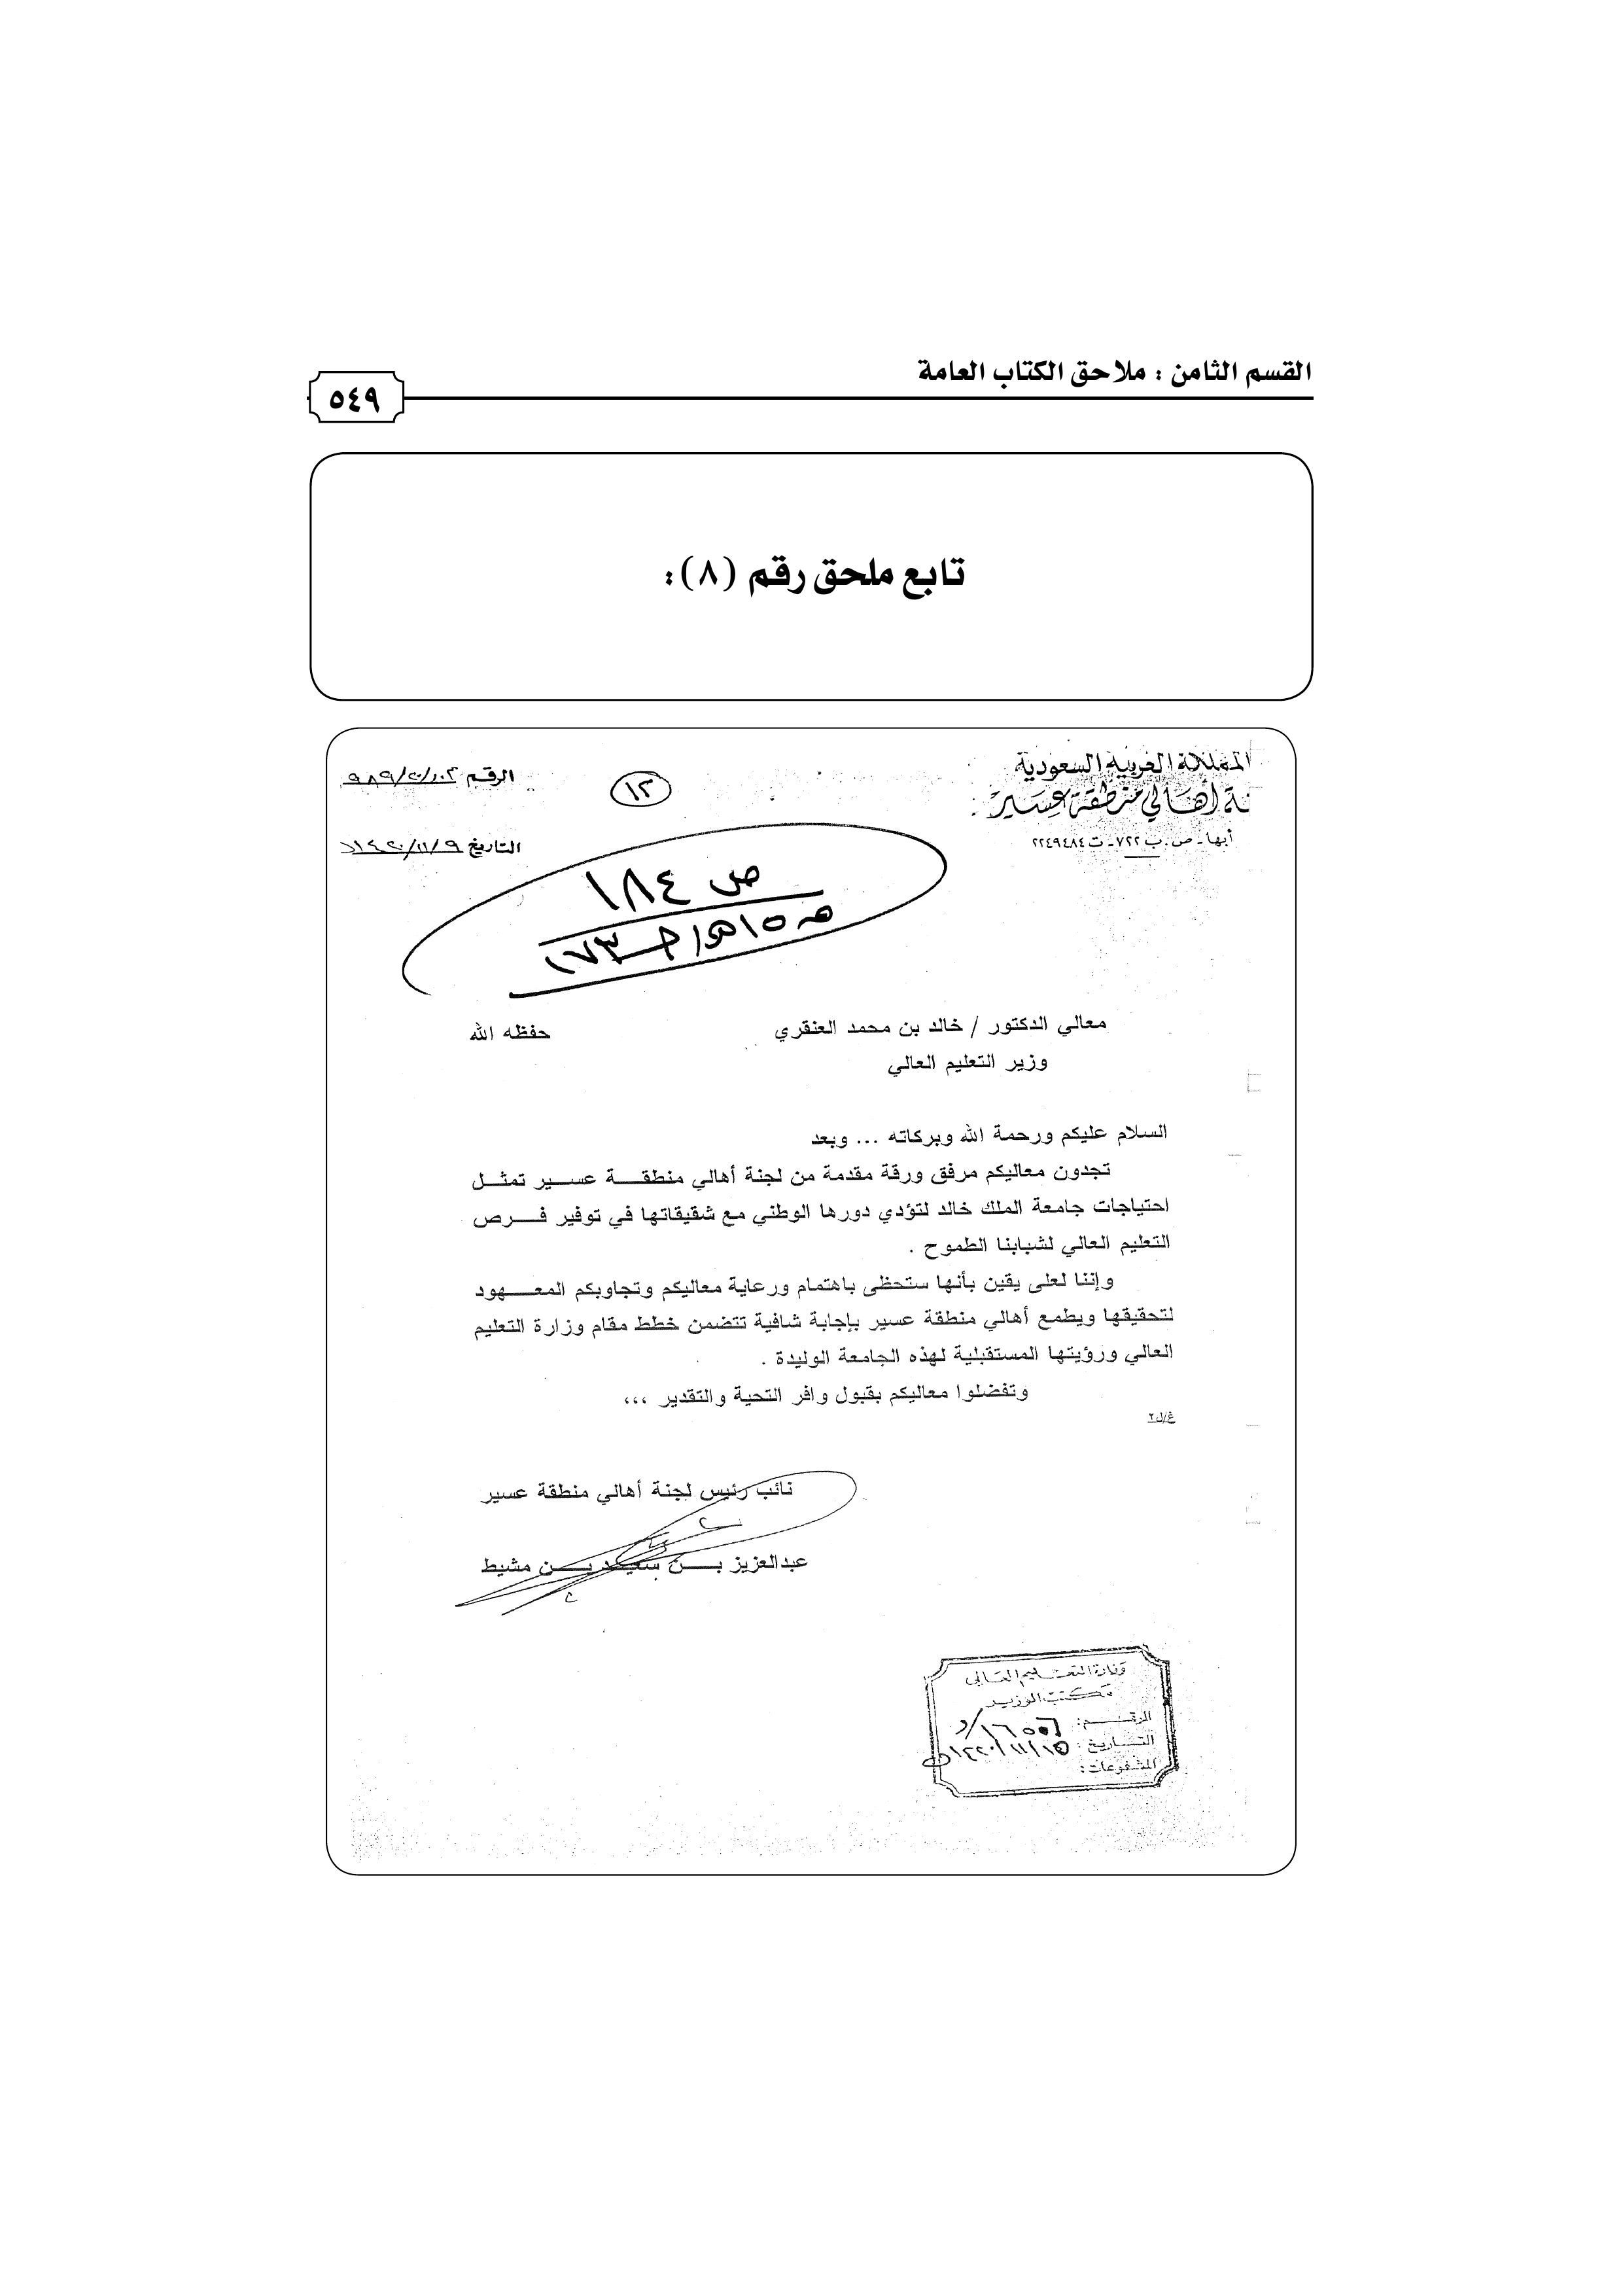 القسم الثامن : ملاحق الكتاب العامة
٥٤٩
تابع ملحق رقم (٨):
المملكة العربية السعودية
أهالي منطقة عسير
أبها - ص.ب ٧٢٢ - ت ٢٢٤٩٤٨٤
الرقم
١٢
التاريخ ١٤٢٠/١١/٩
ص ١٨٤
معالي الدكتور / خالد بن محمد العنقري حفظه الله
وزير التعليم العالي
السلام عليكم ورحمة الله وبركاته ... وبعد
تجدون معاليكم مرفق ورقة مقدمة من لجنة أهالي منطقـــة عســـير تمثـــل
احتياجات جامعة الملك خالد لتؤدي دورها الوطني مع شقيقاتها في توفير فـــرص
التعليم العالي لشبابنا الطموح .
وإننا لعلى يقين بأنها ستحظى باهتمام ورعاية معاليكم وتجاوبكم المعـــهود
لتحقيقها ويطمع أهالي منطقة عسير بإجابة شافية تتضمن خطط مقام وزارة التعليم
العالي ورؤيتها المستقبلية لهذه الجامعة الوليدة .
وتفضلوا معاليكم بقبول وافر التحية والتقدير ،،،
غ/ل٢
نائب رئيس لجنة أهالي منطقة عسير
عبدالعزيز بـــن سعيـــد بـــن مشيط
وزارة التعليم العالي
مكتب الوزير
الرقـــم:
التـــاريخ : ١٤٢٠/١١/١٥
المشفوعات: